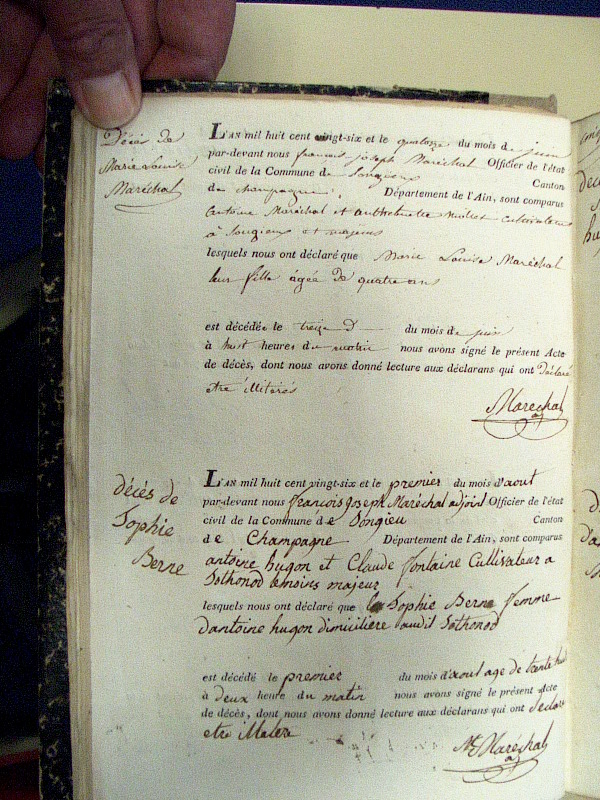 Décès de
Marie Louise
Maréchal
L'AN mil huit cent vingt-six et le quatorze du mois de juin
par-devant nous françois joseph Maréchal Officier de l'état
civil de la Commune de Songieu Canton
de champagne, Département de l'Ain, sont comparus
antoine Maréchal et cultivateurs
à Songieu et majeurs
lesquels nous ont déclaré que Marie Louise Maréchal
leur fille âgée de quatre ans
est décédée le treize d du mois de juin
à huit heures du matin nous avons signé le présent Acte
de décès, dont nous avons donné lecture aux déclarans qui ont Déclaré
etre illiterés
Maréchal
décés de
Sophie
Berne
L'AN mil huit cent vingt-six et le premier du mois d'aout
par-devant nous françois joseph Maréchal adjoint Officier de l'état
civil de la Commune de Songieu Canton
de Champagne Département de l'Ain, sont comparus
antoine hugon et Claude fontaine Cultivateur a
Sothonod temoins majeur
lesquels nous ont déclaré que Sophie Berne femme
dantoine hugon dimiciliere audit Sothonod
est décédé le premier du mois d'aout age de trente huit
à deux heure du matin nous avons signé le présent Acte
de décès, dont nous avons donné lecture aux déclarans qui ont declare
etre
Maréchal